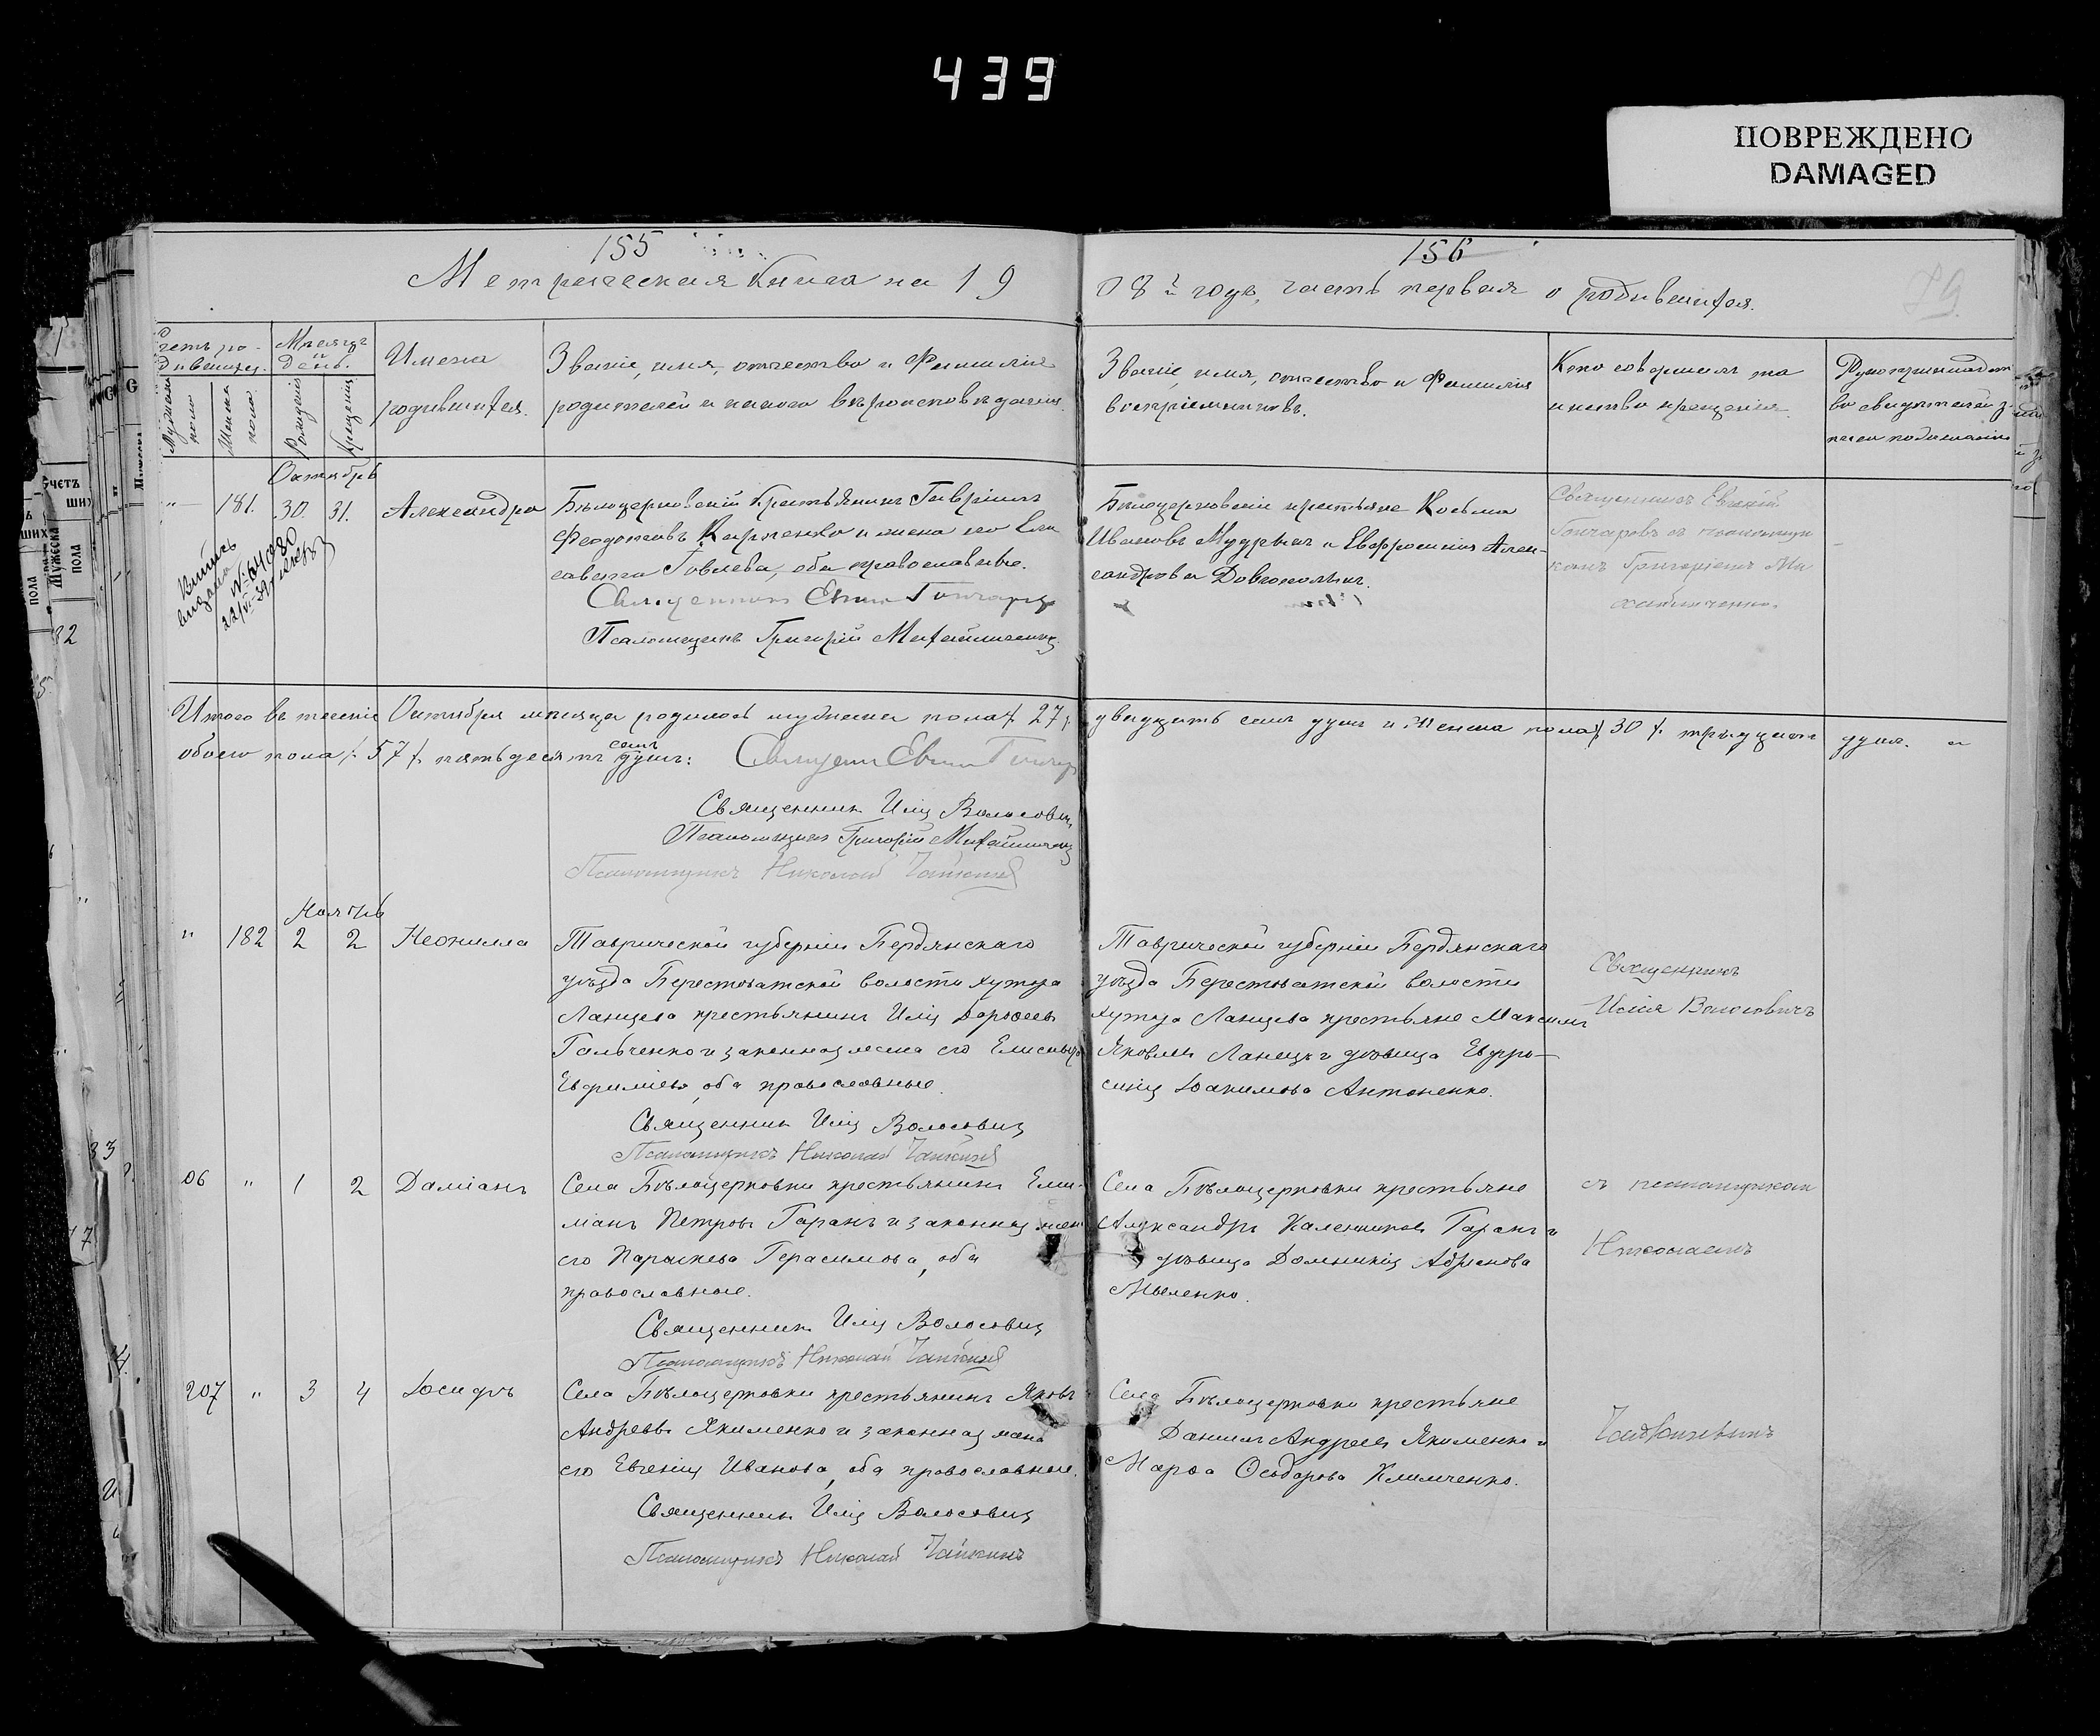 439
ПОВРЕЖДЕНО
DAMAGED
155
156
Метрическая книга на 19
08 г. годъ, часть первая о родившихся.
Счетъ ро-
дившихся.
Мѣсяцъ
и
день.
Мужска
пола
Женска
пола
Рожденія
Крещенія
Имена
родившихся.
Званіе, имя, отчество и фамилія
родителей и какого вѣроисповѣданія
Званіе, имя, отчество и фамилія
воспріемниковъ.
Кто совершалъ та
инство крещенія
Рукоприкладст
во свидѣтелей з-
писи по желанію
Октябрь
"
181.
30.
31.
Александра
Бѣлоцерковскій крестьянинъ Гавріилъ
Феодотовъ Карпенко и жена его Ели
савета Іовлева, оба православные.
Священникъ Евгеній Гончаровъ
Псаломщикъ Григорій Михайличенко
Выпись
выдана
№
22/VI
Бѣлоцерковскіе крестьяне Косьма
Ивановъ Мудрыхъ и Евфросинія Алек-
сандрова Довгополыхъ.
Священникъ Евгеній
Гончаровъ съ псаломщи
комъ Григоріемъ Ми
хайличенко.
Итого въ теченіе Октября мѣсяца родилось мужеска пола /. 27 /.
двадцать семь душъ и женска пола /. 30 /. тридцать душъ. а
обоего пола /. 57 /. пятьдесятъ семь душъ:
Священ Евгеній Гончар
Священникъ Илія Волосовичъ
Псаломщикъ Григорій Михайличенко
Псаломщикъ Николай Чайкинъ
Ноябрь
"
182
2
2
Неонилла
Таврической губерніи Бердянскаго
уѣзда Берестоватской волости хутора
Ланцева крестьянинъ Илія Дороѳеевъ
Гальченко и законная жена его Елисавета
Евфиміева, оба православные.
Священникъ Илія Волосовичъ
Псаломщикъ Николай Чайкинъ
Таврической губерніи Бердянскаго
уѣзда Берестоватской волости
хутора Ланцева крестьяне Максимъ
Яковлевъ и дѣвица Евфро-
синія Іоакимова Антоненко.
Священникъ
Илія Волосовичъ
06
"
1
2
Даміанъ
Села Бѣлоцерковки крестьянинъ Еми-
Петровъ Гаранъ и законная жен
его Параскева Герасимова, оба
православные.
Священникъ Илія Волосовичъ
Псаломщикъ Николай Чайкинъ
Села Бѣлоцерковки крестьяне
Александръ Калениковъ Гаранъ и
дѣвица Домникія Адріанова
съ псаломщикомъ
Николаемъ
207
"
3
4
Іосифъ
Села Бѣлоцерковки крестьянинъ Яковъ
Андреевъ Якименко и законная жена
его Евгенія Иванова, оба православные.
Священникъ Илія Волосовичъ
Псаломщикъ Николай Чайкинъ
Села Бѣлоцерковки крестьяне
Даніилъ Андреевъ Якименко и
Марѳа Ѳеодорова Климченко.
Чайкинымъ